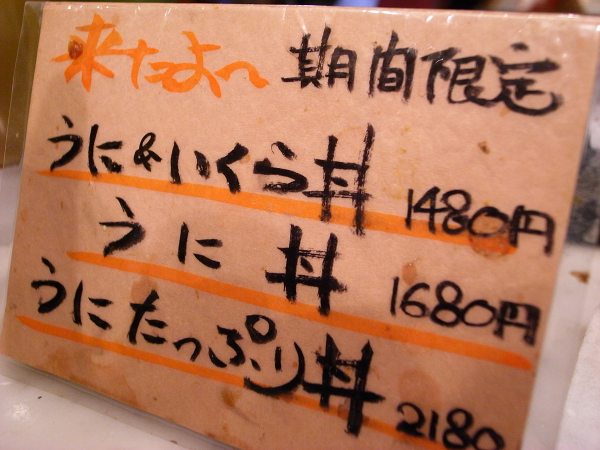 来たよ〜 期間限定
うに&いくら丼 1480円
うに丼 1680円
うにたっぷり丼 2180